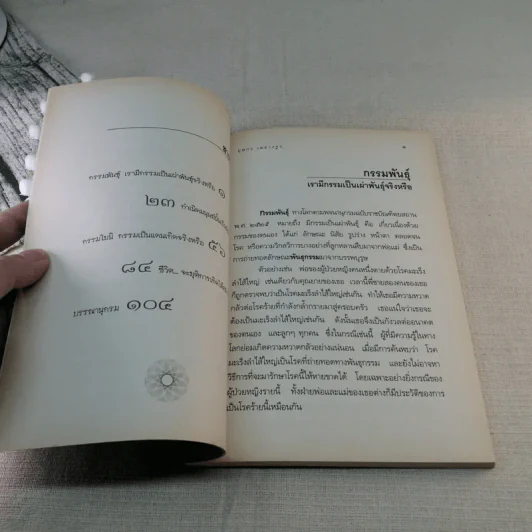 กรรมพันธุ์ เรามีกรรมเป็นเผ่าพันธุ์จริงหรือ ๑
๒๓ กำเนิดมนุษย์นั้น
กรรมโยนิ กรรมเป็นแดนเกิดจริงหรือ ๕๖
๘๔ ชีวิต...จะยุติการเกิด
บรรณานุกรม ๑๐๔
กรรมพันธุ์
เรามีกรรมเป็นเผ่าพันธุ์จริงหรือ
กรรมพันธุ์ ทางโลกตามพจนานุกรมฉบับราชบัณฑิตยสถาน
พ.ศ. ๒๕๒๕ หมายถึง มีกรรมเป็นเผ่าพันธุ์ คือ เกี่ยวเนื่องด้วย
กรรมของตนเอง ได้แก่ ลักษณะ นิสัย รูปร่าง หน้าตา ตลอดจน
โรค หรือความวิกลวิการบางอย่างที่ลูกหลานสืบมาจากพ่อแม่ ซึ่งเป็น
การถ่ายทอดลักษณะพันธุกรรมมาจากบรรพบุรุษ
ตัวอย่างเช่น พ่อของผู้ป่วยหญิงคนหนึ่งตายด้วยโรคมะเร็ง
ลำไส้ใหญ่ เช่นเดียวกับคุณยายของเธอ เวลานี้พี่ชายสองคนของเธอ
ก็ถูกตรวจพบว่าเป็นโรคมะเร็งลำไส้ใหญ่เช่นกัน ทำให้เธอมีความหวาด
กลัวต่อโรคร้ายที่กำลังกล้ำกรายมาสู่ครอบครัว เธอแน่ใจว่าเธอจะ
ต้องเป็นมะเร็งลำไส้ใหญ่เช่นกัน ดังนั้นเธอจึงเป็นกังวลต่ออนาคต
ของตนเอง และลูกๆ ทุกคน ซึ่งในกรณีเช่นนี้ ผู้ที่มีความรู้ในทาง
โลกย่อมเกิดความหวาดกลัวอย่างแน่นอน เมื่อมีการค้นพบว่า โรค
มะเร็งลำไส้ใหญ่เป็นโรคที่ถ่ายทอดทางพันธุกรรม และยังไม่อาจหา
วิธีการที่จะมารักษาโรคนี้ให้หายขาดได้ โดยเฉพาะอย่างยิ่งกรณีของ
ผู้ป่วยหญิงรายนี้ ทั้งฝ่ายพ่อและแม่ของเธอต่างก็มีประวัติของการ
เป็นโรคร้ายนี้เหมือนกัน